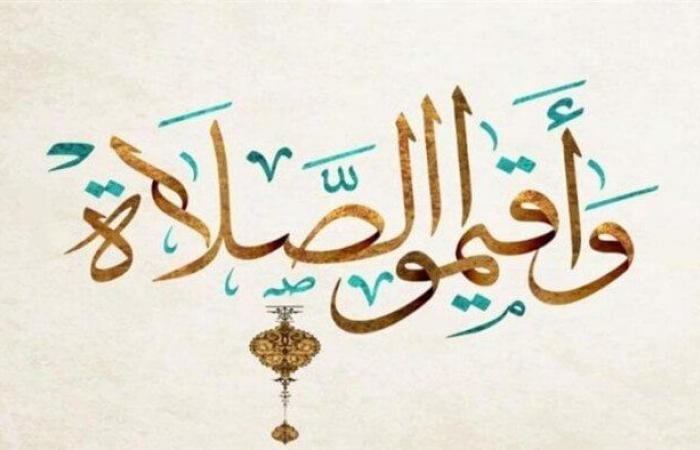 وَأَقيمو االصَّلَاةَ